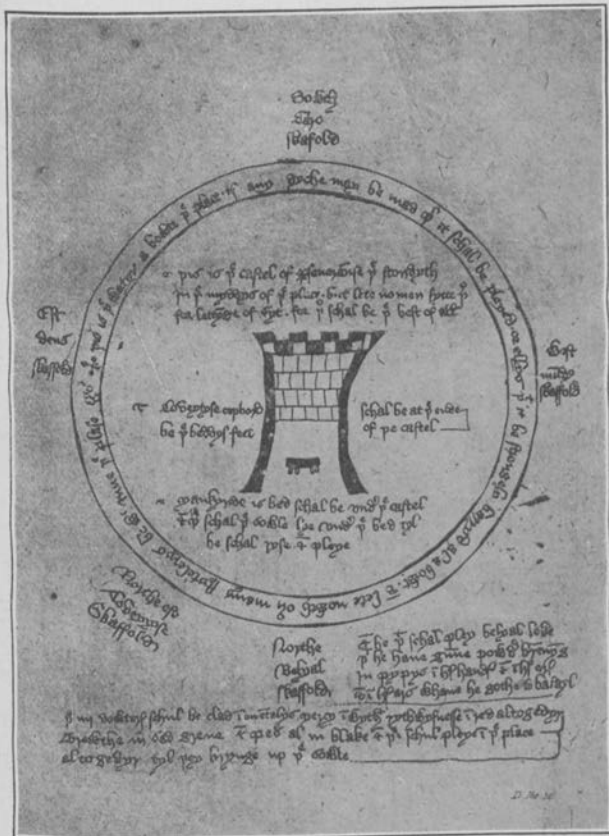 Sowth
Caro
skaffold
þis is þe watyr a bowte þe place if any dyche may be mad þer it schal be pleyed or ellys þat it be strongely barryd al a bowt & lete nowth ouyr many stytelerys be wyth inne þe plase
þis is þe castel of perseueraunse þat stondyth
in þe myddys of þe place but lete no men sytte þer
for lettynge of syt for þer schal be þe best of all
Est
deus
skaffold
West
mundus
skaffold
Coveytyse copbord
be þe beddys feet
schal be at þe ende
of þe castel
Mankyndeis bed schal be undyr þe castel
& þer schal þe sowle lye undyr þe bed tyl
he schal ryse & pleye
Northe est
Coveytyse
skaffold
Northe
Belyal
skaffold
& he þat schal pley belyal loke
þat he haue gunne powdyr brennynge
in pypys in hys handys & in hys erys
& in hys ars whanne he gothe to batayl
þe iiij dowterys schul be clad in mentelys mercy in wyth rythwysnesse in red altogedyr
trewthe in sad grene & pes al in blake & þei schul pleye in þe place
altogedyr tyl þey brynge up þe sowle